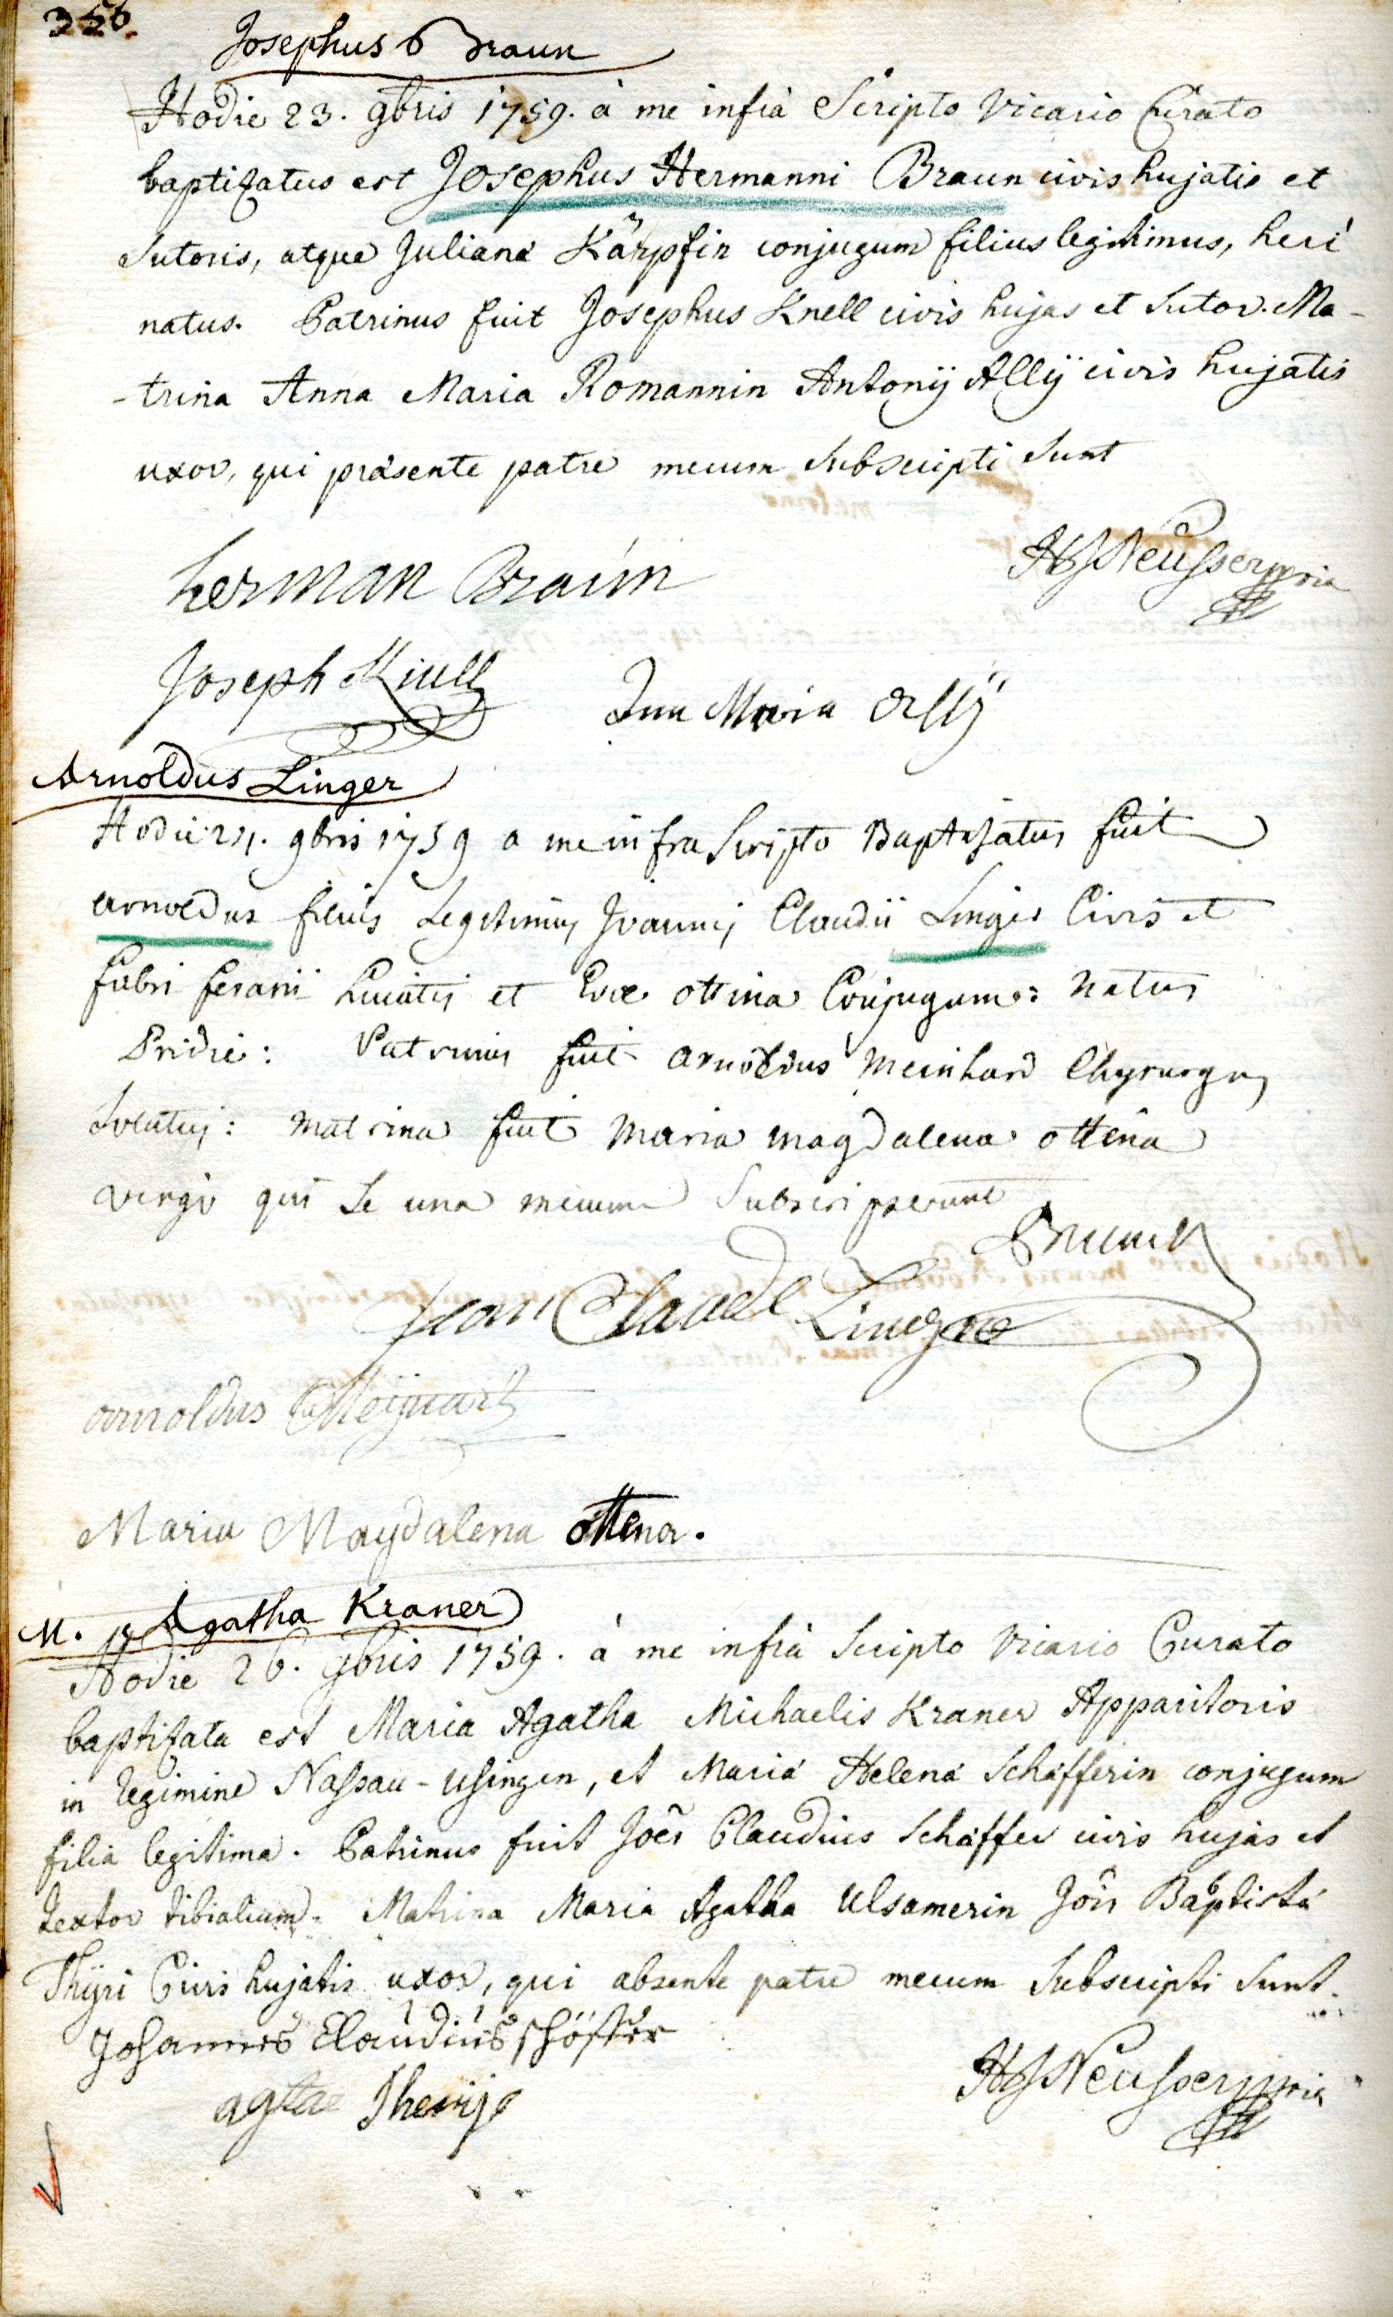 356.
Josephus Braun
Hodie 23. 9bris 1759. à me infrà Scripto Vicario Curato
baptizatus est Josephus Hermanni Braun civis hujatis et
Sutoris, atque Julianá Kärpfin conjugum filius legitimus, heri
natus. Patrinus fuit Josephus Knell civis hujas et Sutor. Ma-
-trina Anna Maria Romannin Antonÿ Allÿ civis hujatis
uxor, qui præsente patre mecum Subscripti Sunt
HJNeusser mpria
herman Braún
Joseph Knell
Ann Maria Allÿ
Arnoldus Linger
Hodie 24. 9bris 1759 a me infra Scripto Baptisatus fuit
arnoldus filius Legitimus Joannis Claudii Linger Civis et
fabri ferarii huiatis et Evæ ottina Conjugum: natus
Pridie: Patrinus fuit arnoldus Meinhard Chyrurgus
Solutus: matrina fuit Maria magdalena ottena
virgo qui Se una mecum Subscripserunt
Jean Claude Lingre
arnoldus Meijnart
Maria Magdalena ottena.
M. Agatha Kraner
Hodie 26. 9bris 1759. à me infrà Scripto Vicario Curato
baptizata est Maria Agatha Michaelis Kraner Apparitoris
in regimine Nassau-Usingen, et Mariá Helená Schäfferin conjugum
filia legitima. Patrinus fuit Joês Claudius Schäffer civis hujas et
textor tibialium. Matrina Maria Agatha Ulsamerin Joîs Baptistá
Thÿri Civis hujatis uxor, qui absente patre mecum Subscripti Sunt.
Johannes Claudius schöffer
HJNeusser mpria
agtae